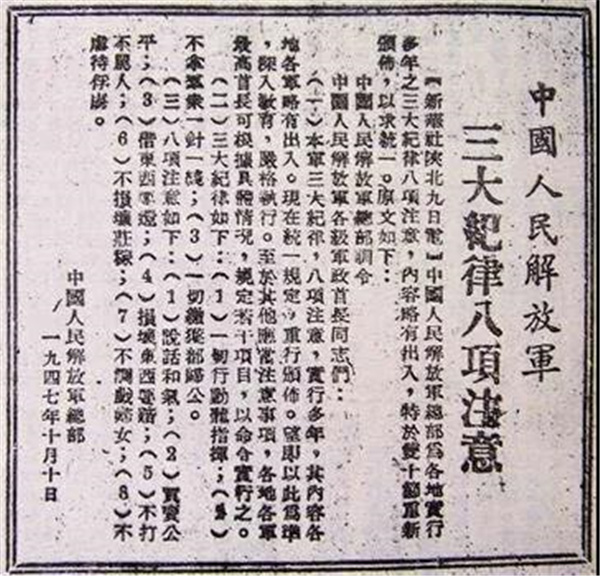 中國人民解放軍
三大紀律八項注意
【新華社陝北九日電】中國人民解放軍總部爲各地實行
多年之三大紀律八項注意，內容略有出入，特於雙十節重新
頒佈，以求統一。原文如下：
中國人民解放軍總部訓令
中國人民解放軍各級軍政首長同志們：
（一）本軍三大紀律，八項注意，實行多年，其內容各
地各軍略有出入。現在統一規定，重行頒佈。望即以此爲準
，深入教育，嚴格執行。至於其他應當注意事項，各地各軍
最高首長可根據具體情況，規定若干項目，以命令實行之。
（二）三大紀律如下：（1）一切行動聽指揮；（2）
不拿羣衆一針一綫；（3）一切繳獲都歸公。
（三）八項注意如下：（1）說話和氣；（2）買賣公
平；（3）借東西要還；（4）損壞東西要賠；（5）不打
不罵人；（6）不損壞莊稼；（7）不調戲婦女；（8）不
虐待俘虜。
中國人民解放軍總部
一九四七年十月十日